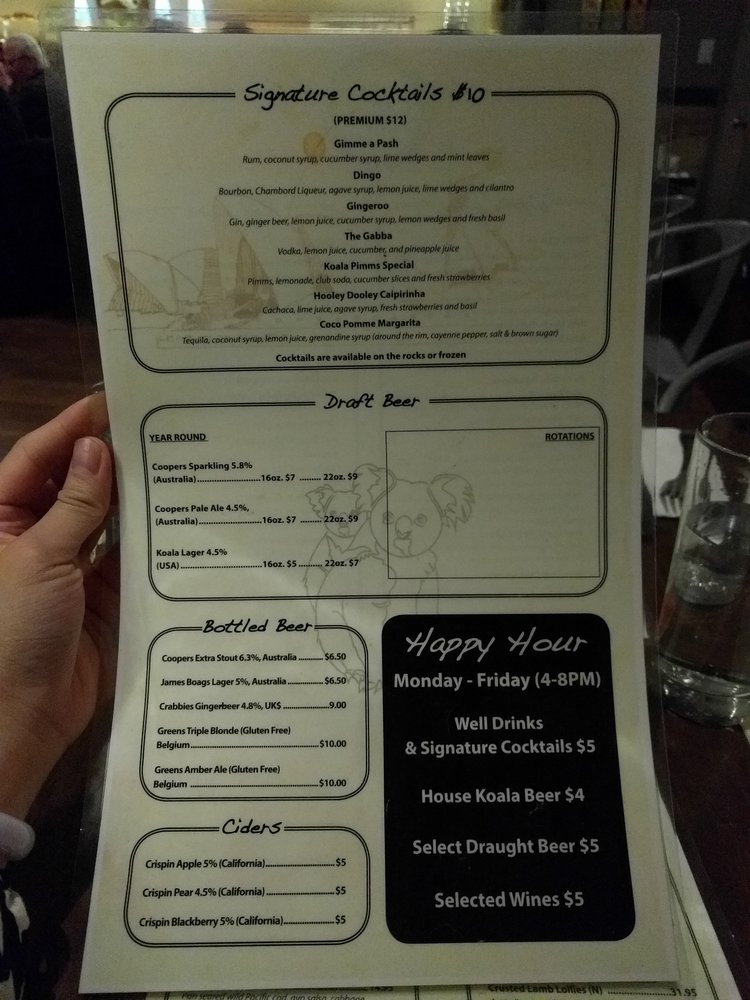 Signature Cocktails $10
(PREMIUM $12)
Gimme a Pash
Rum, coconut syrup, cucumber syrup, lime wedges and mint leaves
Dingo
Bourbon, Chambord Liqueur, agave syrup, lemon juice, lime wedges and cilantro
Gingeroo
Gin, ginger beer, lemon juice, cucumber syrup, lemon wedges and fresh basil
The Gabba
Vodka, lemon juice, cucumber, and pineapple juice
Koala Pimms Special
Pimms, lemonade, club soda, cucumber slices and fresh strawberries
Hooley Dooley Caipirinha
Cachaca, lime juice, agave syrup, fresh strawberries and basil
Coco Pomme Margarita
Tequila, coconut syrup, lemon juice, grenandine syrup (around the rim, cayenne pepper, salt & brown sugar)
Cocktails are available on the rocks or frozen
Draft Beer
YEAR ROUND
Coopers Sparkling 5.8%
(Australia)........................16oz. $7 ......... 22oz. $9
Coopers Pale Ale 4.5%,
(Australia)........................16oz. $7 ......... 22oz. $9
Koala Lager 4.5%
(USA)..............................16oz. $5.......... 22oz. $7
ROTATIONS
Bottled Beer
Coopers Extra Stout 6.3%, Australia ........... $6.50
James Boags Lager 5%, Australia ................ $6.50
Crabbies Gingerbeer 4.8%, UK$ ..................9.00
Greens Triple Blonde (Gluten Free)
Belgium................................................$10.00
Greens Amber Ale (Gluten Free)
Belgium ................................................$10.00
Ciders
Crispin Apple 5% (California)..........................$5
Crispin Pear 4.5% (California) ........................$5
Crispin Blackberry 5% (California)...................$5
Happy Hour
Monday - Friday (4-8PM)
Well Drinks
& Signature Cocktails $5
House Koala Beer $4
Select Draught Beer $5
Selected Wines $5
14.95
Pan seared wild Pacific cod, avo salsa, cabbage
Crusted Lamb Lollies (N) ......................31.95